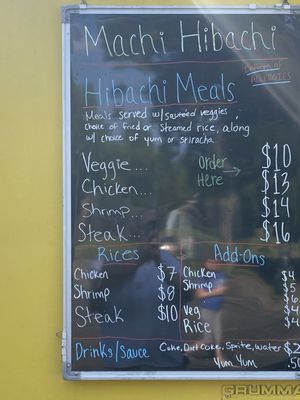 Machi Hibachi
Inform of
ALLERGIES
Hibachi Meals
Meals served w/ sauteed veggies
choice of fried or steamed rice, along
w/ choice of yum or sriracha
Veggie... $10
Chicken... $13
Shrimp... $14
Steak... $16
Order
Here
Rices
Chicken $7
Shrimp $8
Steak $10
Add-Ons
Chicken $4
Shrimp $5
$6
Veg $4
Rice $4
Drinks/Sauce Coke, Diet Coke, Sprite, Water $2
Yum Yum .50
GRUMMA